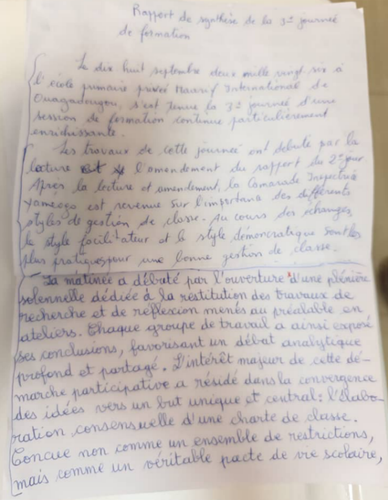 Rapport de synthèse de la 3e journée
de formation
Le dix huit septembre deux mille vingt six à
l'école primaire privée Maarif International de
Ouagadougou, s'est tenue la 3e journée d'une
session de formation continue particulièrement
enrichissante.
Les travaux de cette journée ont débuté par la
lecture et l'amendement du rapport du 2e jour
Après la lecture et amendement, la camarade Inspectrice
est revenue sur l'importance des différents
styles de gestion de classe. Au cours des échanges,
le style facilitateur et le style démocratique sont les
plus pratiques pour une bonne gestion de classe.
La matinée a débuté par l'ouverture d'une plénière
solennelle dédiée à la restitution des travaux de
recherche et de réflexion menés au préalable en
ateliers. Chaque groupe de travail a ainsi exposé
ses conclusions, favorisant un débat analytique
profond et partagé. L'intérêt majeur de cette dé-
marche participative a résidé dans la convergence
des idées vers un but unique et central: l'élabo-
ration consensuelle d'une charte de classe.
Conçue non comme un ensemble de restrictions,
mais comme un véritable pacte de vie scolaire,